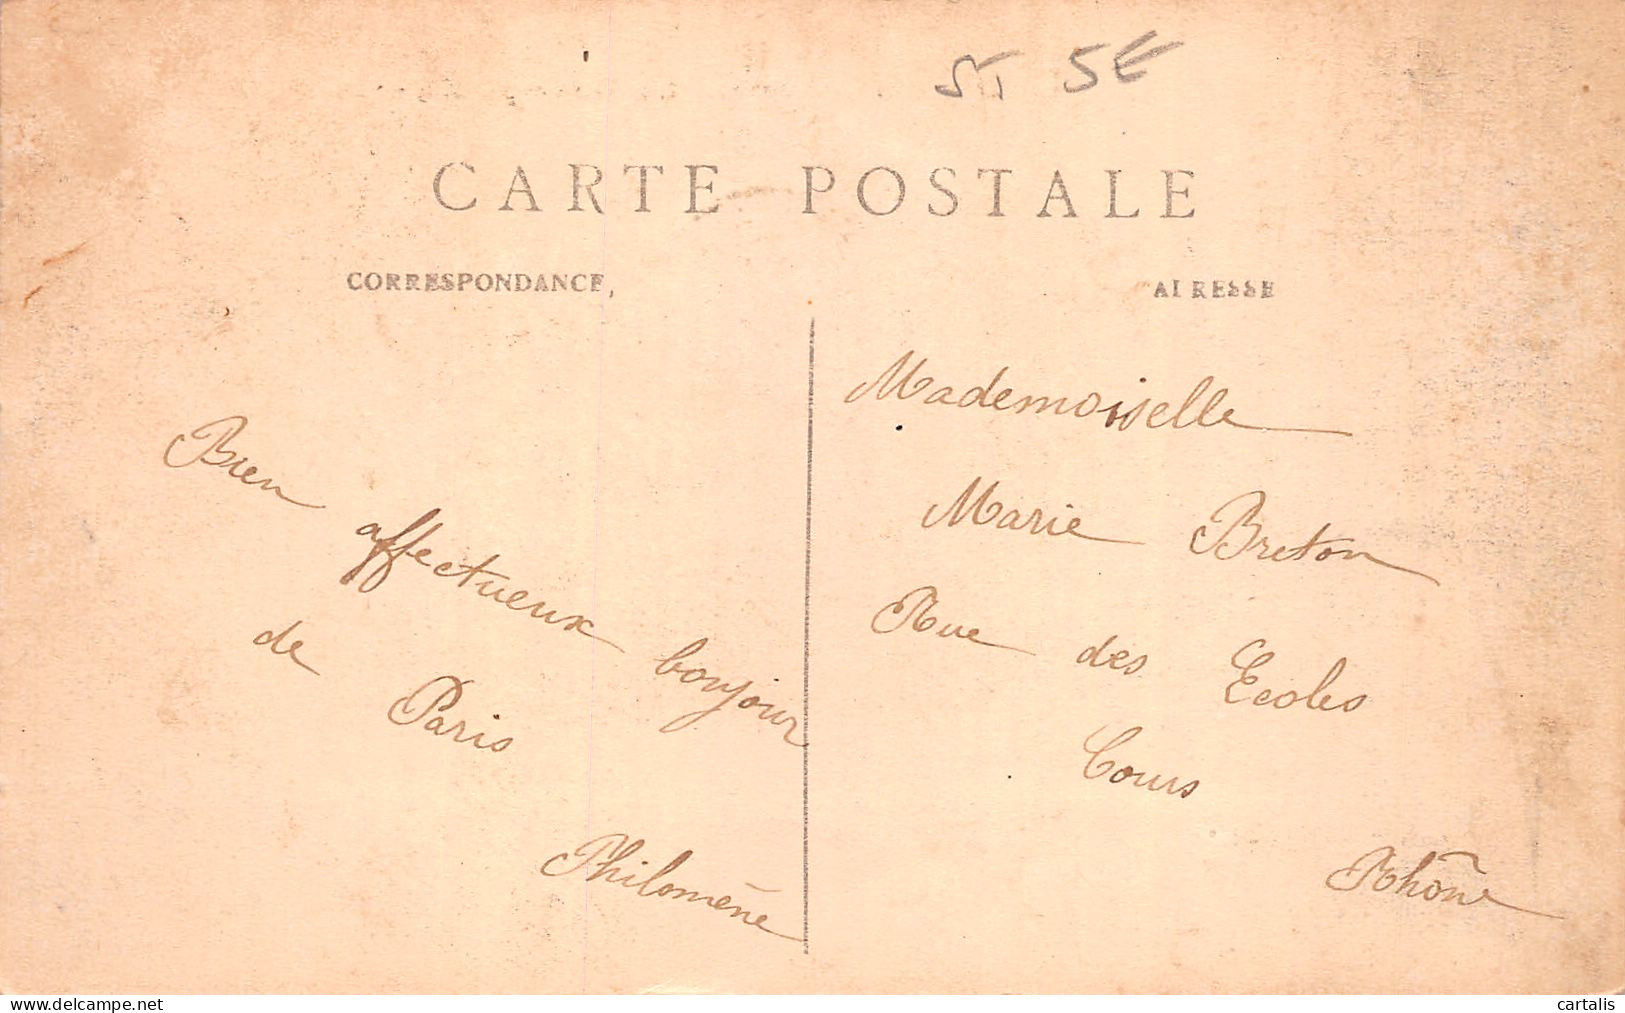 ST 5€
CARTE POSTALE
CORRESPONDANCE,
ADRESSE
Bien affectueux bonjour
de Paris
Philomène
Mademoiselle
Marie Breton
Rue des Ecoles
Cours
Rhône
delcampe.net
cartalis